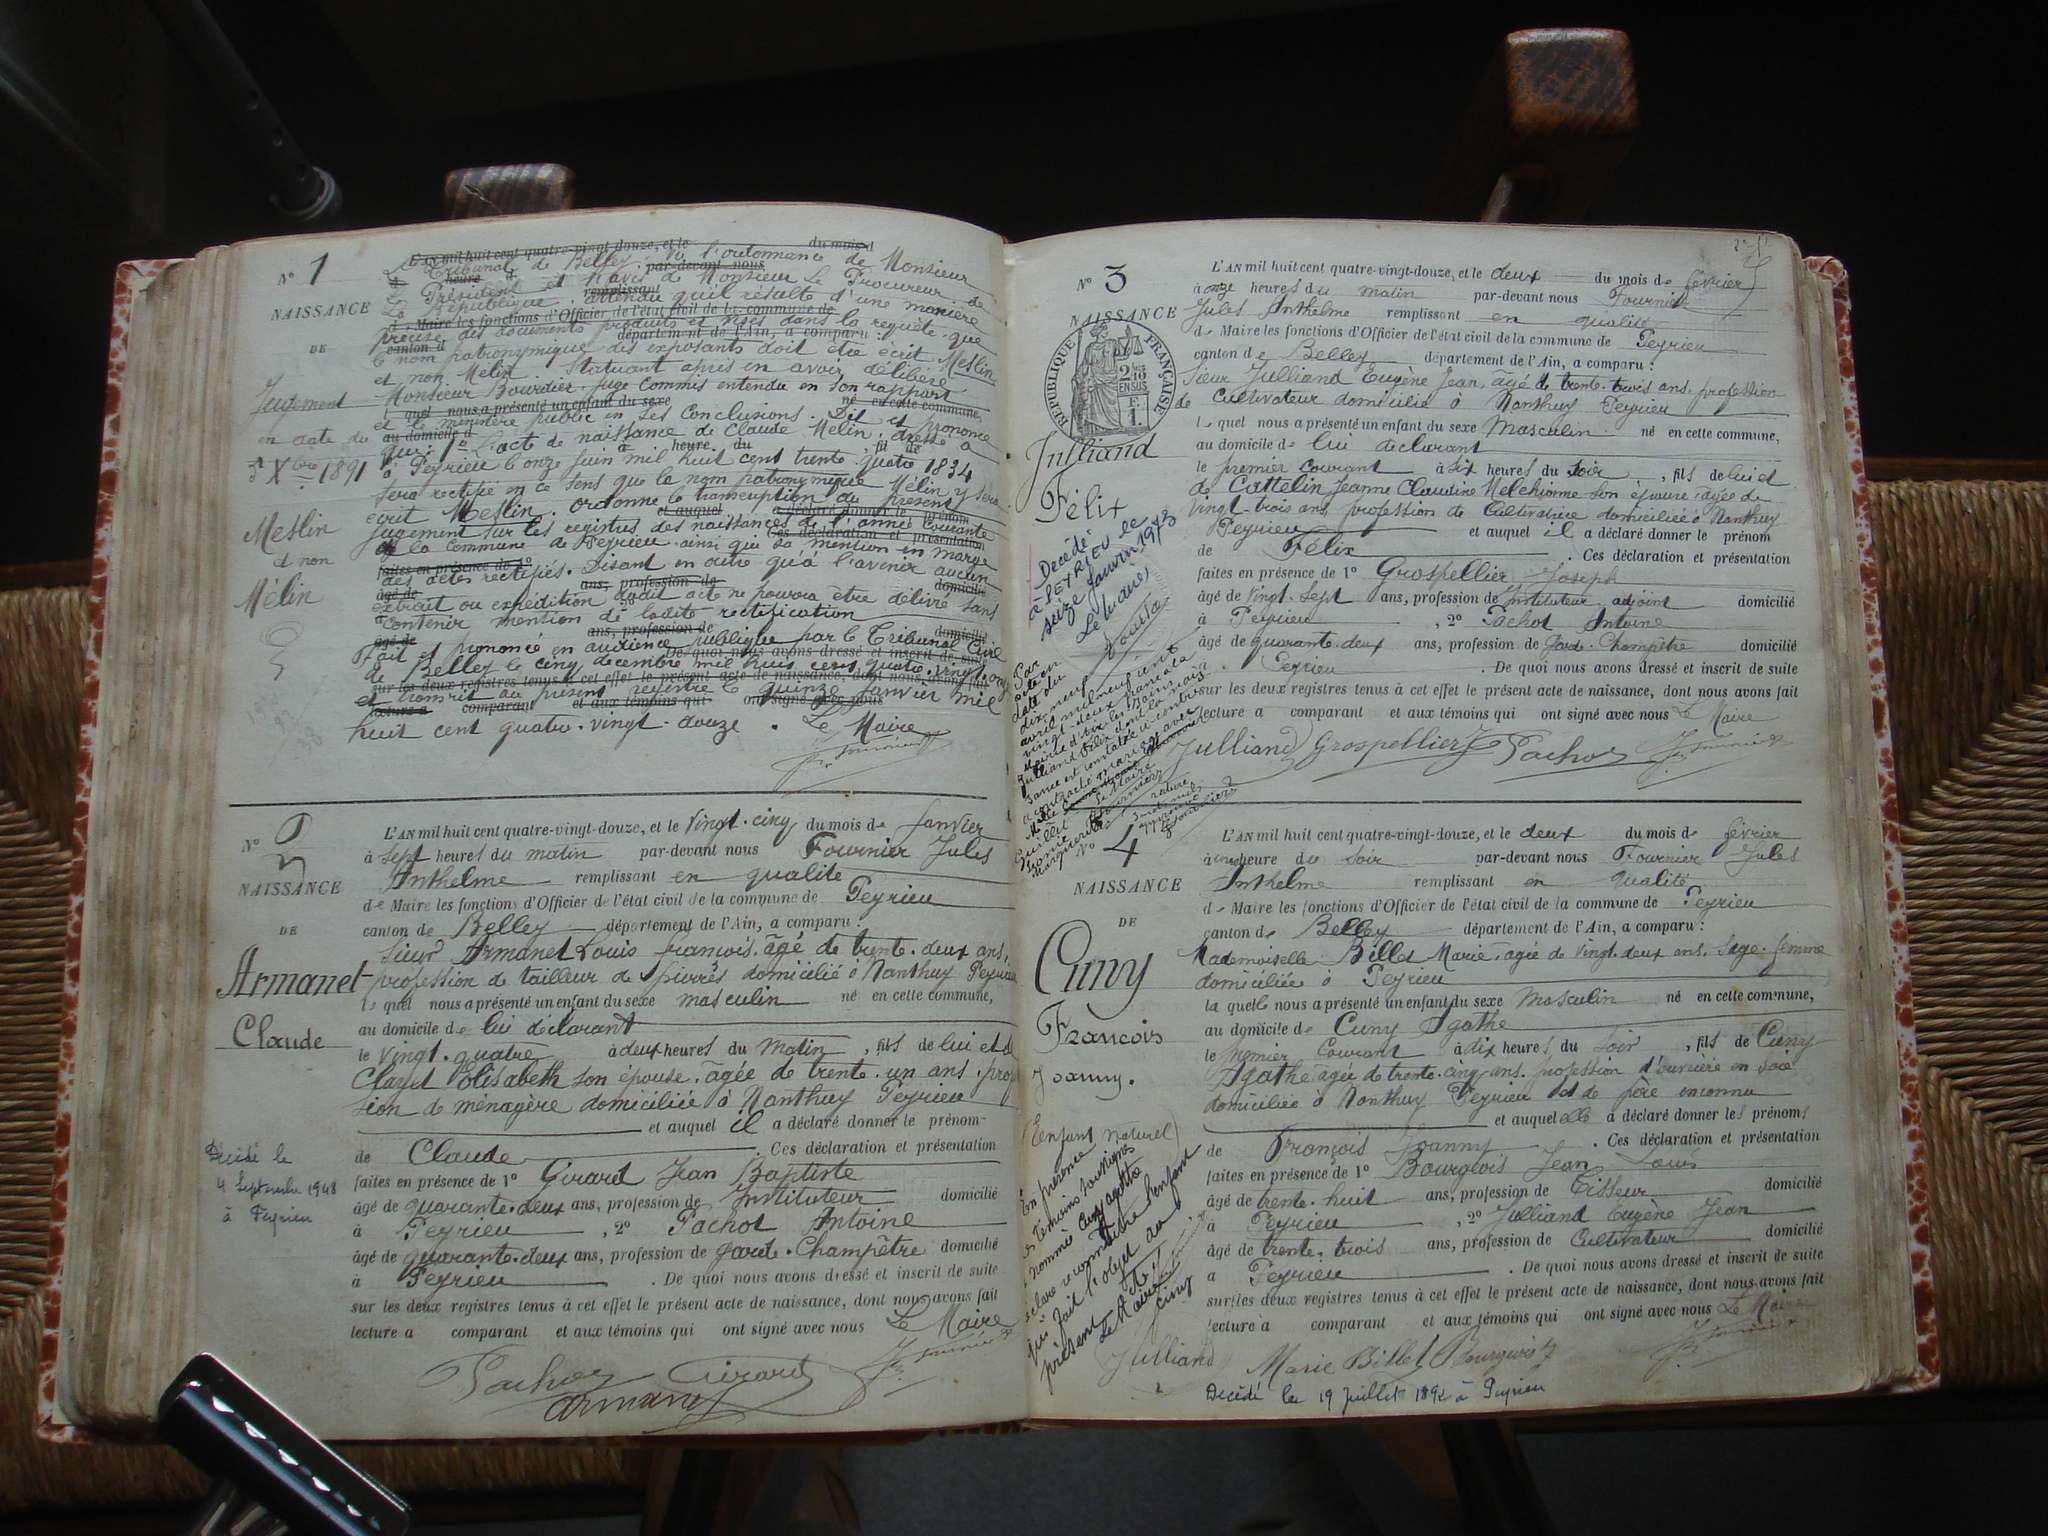 N° 1
NAISSANCE
DE
Jugement
en date du
5 Xbre 1891
Meslin
et non
Mélin
L'AN mil huit cent quatre-vingt-douze, et le du mois d
Le Tribunal de Belley. Vu l'ordonnance de Monsieur
heure par-devant nous
Le Président et l'avis de Monsieur Le Procureur de
remplissant
La République. Attendu qu'il résulte d'une manière
d Maire les fonctions d'Officier de l'état civil de la commune de
précise des documents produits et visés dans la requête que
canton d département de l'Ain, a comparu :
le nom patronymique des exposants doit être écrit Meslin
et non Mélin. Statuant après en avoir délibéré,
Monsieur Bourdier, juge commis entendu en son rapport
l quel nous a présenté un enfant du sexe né en cette commune,
et le ministère public en ses conclusions. Dit et prononce
au domicile d
que: 1° L'acte de naissance de Claude Mélin, dressé à
à heure du , fil de
à Peyrieu le onze Juin mil huit cent trente-quatre 1834
sera rectifié en ce sens que le nom patronymique Mélin y sera
écrit Meslin. Ordonne la transcription du présent
et auquel a déclaré donner le prénom
jugement sur les registres des naissances de l'année courante
de Ces déclaration et présentation
de la commune de Peyrieu ainsi que sa mention en marge
faites en présence de 1°
des actes rectifiés. Disant en outre qu'à l'avenir aucun
âgé de ans, profession de domicilié
extrait ou expédition dudit acte ne pourra être délivré sans
à , 2°
contenir mention de ladite rectification
âgé de ans, profession de domicilié
Fait et prononcé en audience publique par le Tribunal Civil
De quoi nous avons dressé et inscrit de suite
de Belley le cinq décembre mil huit cent quatre-vingt-onze
sur les deux registres tenus à cet effet le présent acte de naissance, dont nous avons fait
et transcrit au présent registre le quinze Janvier mil
lecture a comparant et aux témoins qui ont signé avec nous
huit cent quatre-vingt-douze. Le Maire
N° 2
NAISSANCE
DE
Armanet
Claude
Décédé le
4 Septembre 1948
à Peyrieu
L'AN mil huit cent quatre-vingt-douze, et le vingt-cinq du mois de Janvier
à sept heures du matin par-devant nous Fournier Jules
Anthelme remplissant en qualité
de Maire les fonctions d'Officier de l'état civil de la commune de Peyrieu
canton de Belley département de l'Ain, a comparu :
Sieur Armanet Louis François, âgé de trente-deux ans,
profession de tailleur de pierres domicilié à Nanthuy Peyrieu
le quel nous a présenté un enfant du sexe masculin né en cette commune,
au domicile de lui déclarant
le vingt-quatre à deux heures du matin, fils de lui et de
Clayet Elisabeth son épouse, âgée de trente-un ans, profes
sion de ménagère domiciliée à Nanthuy Peyrieu
et auquel il a déclaré donner le prénom
de Claude . Ces déclaration et présentation
faites en présence de 1° Girard Jean Baptiste
âgé de quarante-deux ans, profession de Instituteur domicilié
à Peyrieu , 2° Pachot Antoine
âgé de quarante-deux ans, profession de garde-Champêtre domicilié
à Peyrieu . De quoi nous avons dressé et inscrit de suite
sur les deux registres tenus à cet effet le présent acte de naissance, dont nous avons fait
lecture a comparant et aux témoins qui ont signé avec nous Le Maire
Pachot Girard
Armanet
N° 3
NAISSANCE
RÉPUBLIQUE FRANÇAISE
Julliand
Félix
Décédé
à PEYRIEU le
seize Janvier 1973
Le Maire,
Par
acte en
date du
dix-neuf
avril mil neuf cent
vingt-deux
Julliand Félix dont la
a contracté mariage avec
L'AN mil huit cent quatre-vingt-douze, et le deux du mois de février
à onze heures du matin par-devant nous Fournier
Jules Anthelme remplissant en qualité
de Maire les fonctions d'Officier de l'état civil de la commune de Peyrieu
canton de Belley département de l'Ain, a comparu :
Sieur Julliand Eugène Jean, âgé de trente-trois ans, profession
de Cultivateur domicilié à Nanthuy Peyrieu
le quel nous a présenté un enfant du sexe Masculin né en cette commune,
au domicile de lui déclarant
le premier courant à six heures du soir, fils de lui et
de Cattelin Jeanne Claudine Melchiorine son épouse âgée de
vingt-trois ans, profession de Cultivatrice domiciliée à Nanthuy
Peyrieu et auquel il a déclaré donner le prénom
de Félix . Ces déclaration et présentation
faites en présence de 1° Grospellier Joseph
âgé de vingt-sept ans, profession de Instituteur adjoint domicilié
à Peyrieu , 2° Pachot Antoine
âgé de quarante-deux ans, profession de Garde-Champêtre domicilié
à Peyrieu . De quoi nous avons dressé et inscrit de suite
sur les deux registres tenus à cet effet le présent acte de naissance, dont nous avons fait
lecture a comparant et aux témoins qui ont signé avec nous Le Maire
Julliand Grospellier Pachot
N° 4
NAISSANCE
DE
Cuny
François
Joanny.
(Enfant naturel)
En présence
des témoins soussignés
la nommée Cuny Agathe
déclare reconnaître l'enfant
qui fait l'objet du
présent acte.
Le Maire
Cuny
Julliand
L'AN mil huit cent quatre-vingt-douze, et le deux du mois de février
à une heure du soir par-devant nous Fournier Jules
Anthelme remplissant en qualité
de Maire les fonctions d'Officier de l'état civil de la commune de Peyrieu
canton de Belley département de l'Ain, a comparu :
Mademoiselle Billet Marie, âgée de vingt-deux ans, Sage-femme
domiciliée à Peyrieu
la quelle nous a présenté un enfant du sexe Masculin né en cette commune,
au domicile de Cuny Agathe
le premier courant à dix heures du soir, fils de Cuny
Agathe âgée de trente-cinq ans, profession d'ouvrière en soie
domiciliée à Nanthuy Peyrieu et de père inconnu
et auquel elle a déclaré donner les prénoms
de François Joanny . Ces déclaration et présentation
faites en présence de 1° Bourgeois Jean Louis
âgé de trente-huit ans, profession de Tisseur domicilié
à Peyrieu , 2° Julliand Eugène Jean
âgé de trente-trois ans, profession de Cultivateur domicilié
à Peyrieu . De quoi nous avons dressé et inscrit de suite
sur les deux registres tenus à cet effet le présent acte de naissance, dont nous avons fait
lecture a comparant et aux témoins qui ont signé avec nous Le Maire
Marie Billet Bourgeois
Décédé le 19 Juillet 1892 à Peyrieu